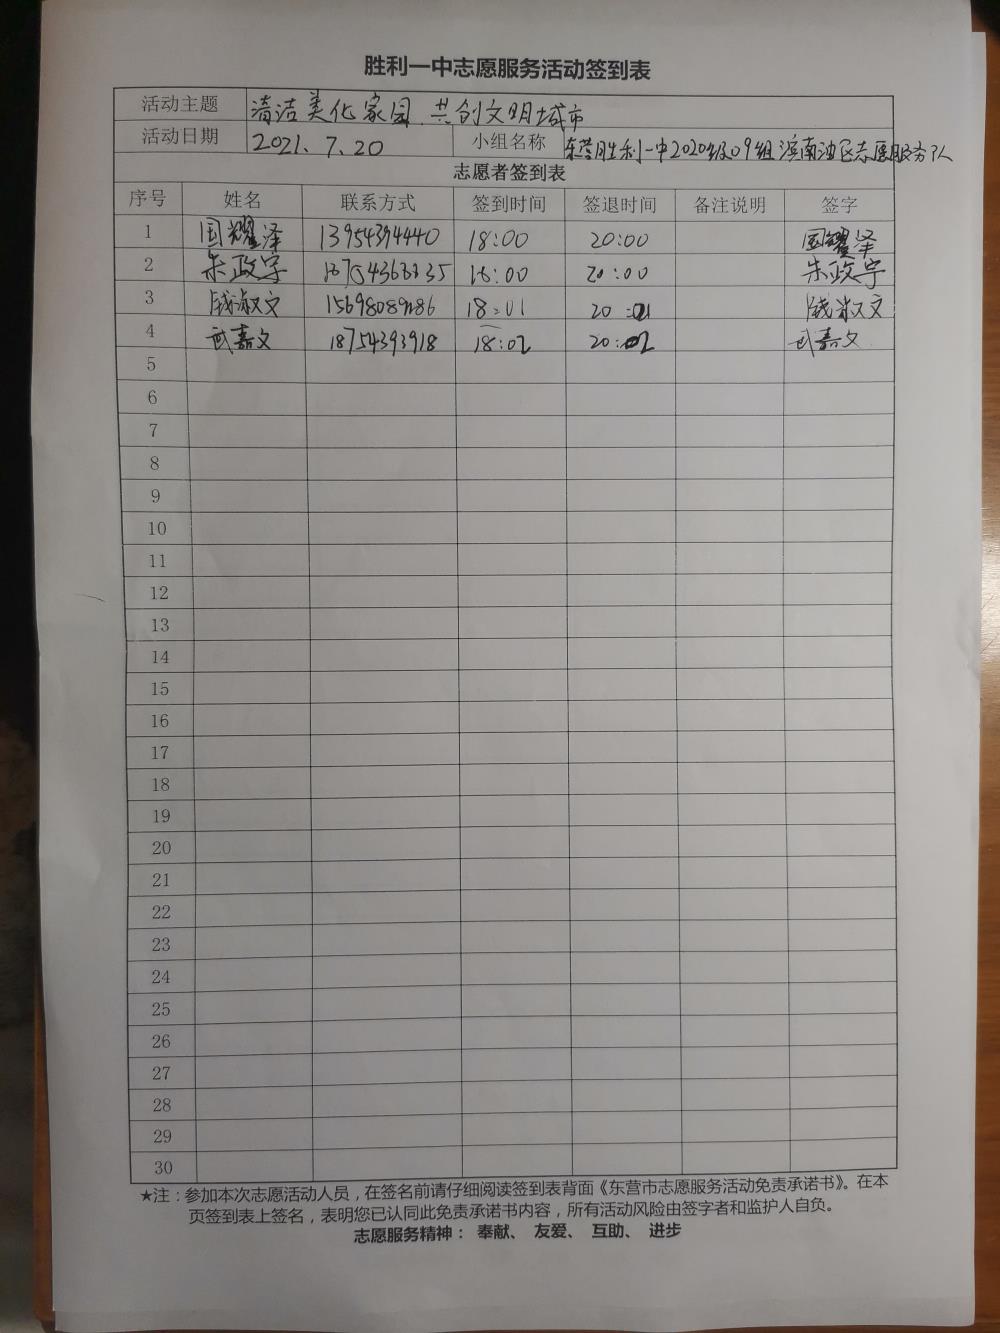 胜利一中志愿服务活动签到表
活动主题 清洁美化家园 共创文明城市
活动日期 2021.7.20 小组名称 东营胜利一中2020级09组滨南油区志愿服务队
志愿者签到表
序号 姓名 联系方式 签到时间 签退时间 备注说明 签字
1 国耀泽 13954394440 18:00 20:00 国耀泽
2 朱政宇 18:00 20:00 朱政宇
3 钱淑文 18:01 20:01 钱淑文
4 武嘉文 18754393918 18:02 20:02 武嘉文
5
6
7
8
9
10
11
12
13
14
15
16
17
18
19
20
21
22
23
24
25
26
27
28
29
30
★注：参加本次志愿活动人员，在签名前请仔细阅读签到表背面《东营市志愿服务活动免责承诺书》。在本
页签到表上签名，表明您已认同此免责承诺书内容，所有活动风险由签字者和监护人自负。
志愿服务精神： 奉献、 友爱、 互助、 进步